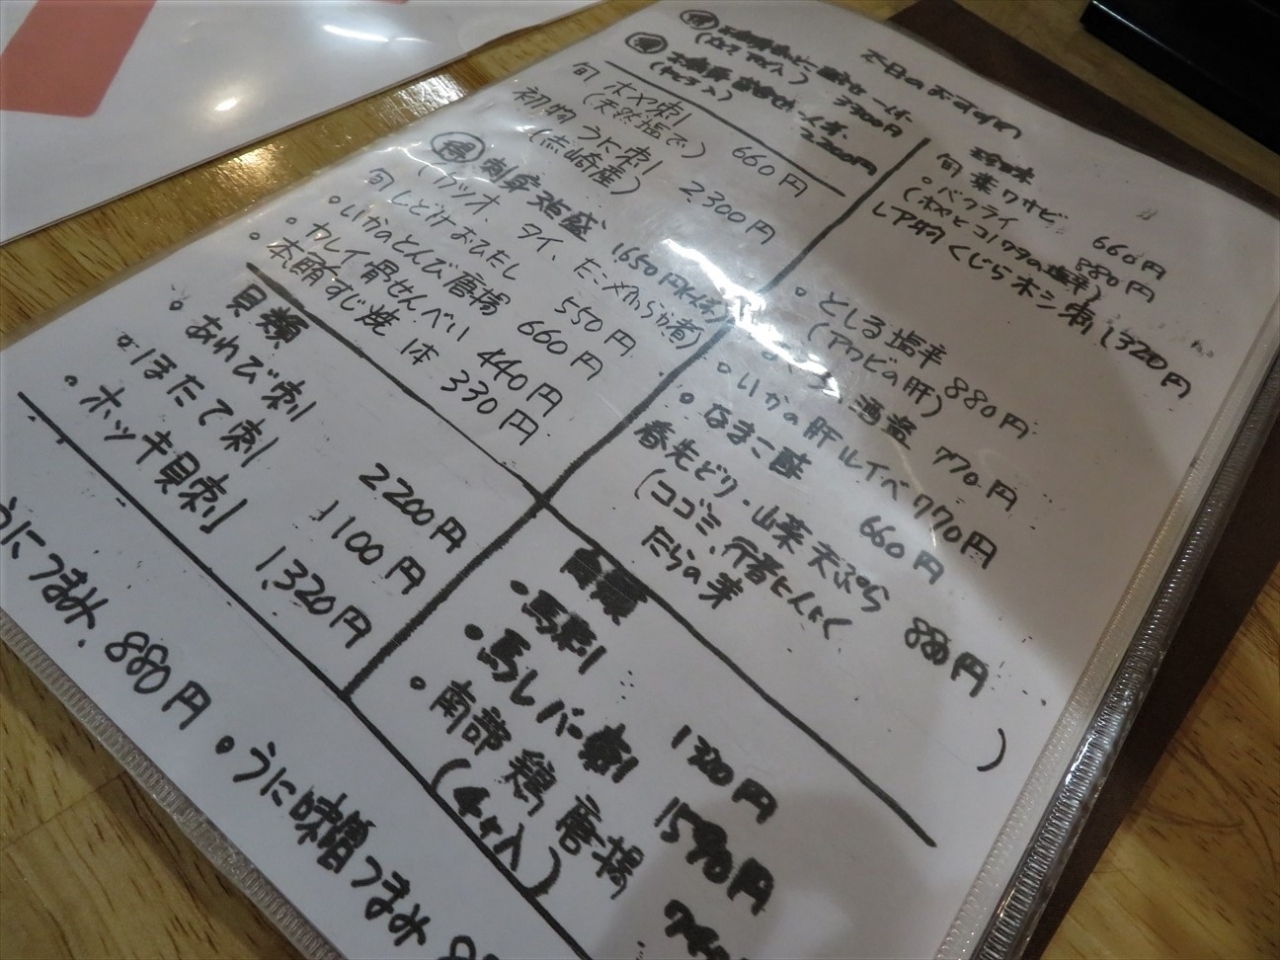 本日のおすすめ
3300円
2,200円
旬 ホヤ刺 660円
(天然塩で)
初物 うに刺 2,300円
(赤崎産)
得 刺身 盛 1650円
(カツオ、タイ、たこ
旬 しどけおひたし 550円
・いかのとんび唐揚 660円
・カレイ骨せんべい 440円
・本鮪すじ焼 1本 330円
貝類
・あわび刺 2200円
・ほたて刺 1100円
・ホッキ貝刺 1,320円
うにつまみ 880円
・うに味噌つまみ
珍味
旬 葉ワサビ 660円
・バクライ 880円
(ホヤとコノワタの塩辛)
くじらホシ刺 1,320円
・としる塩辛 880円
(アワビの肝)
酒盗 770円
・いかの肝ルイベ 770円
・なまこ酢 660円
春先どり・山菜天ぷら 880円
(コゴミ、行者にんにく
たらの芽 )
肉類
・馬刺
・馬レバー刺
・南部鶏唐揚
(4ヶ入)